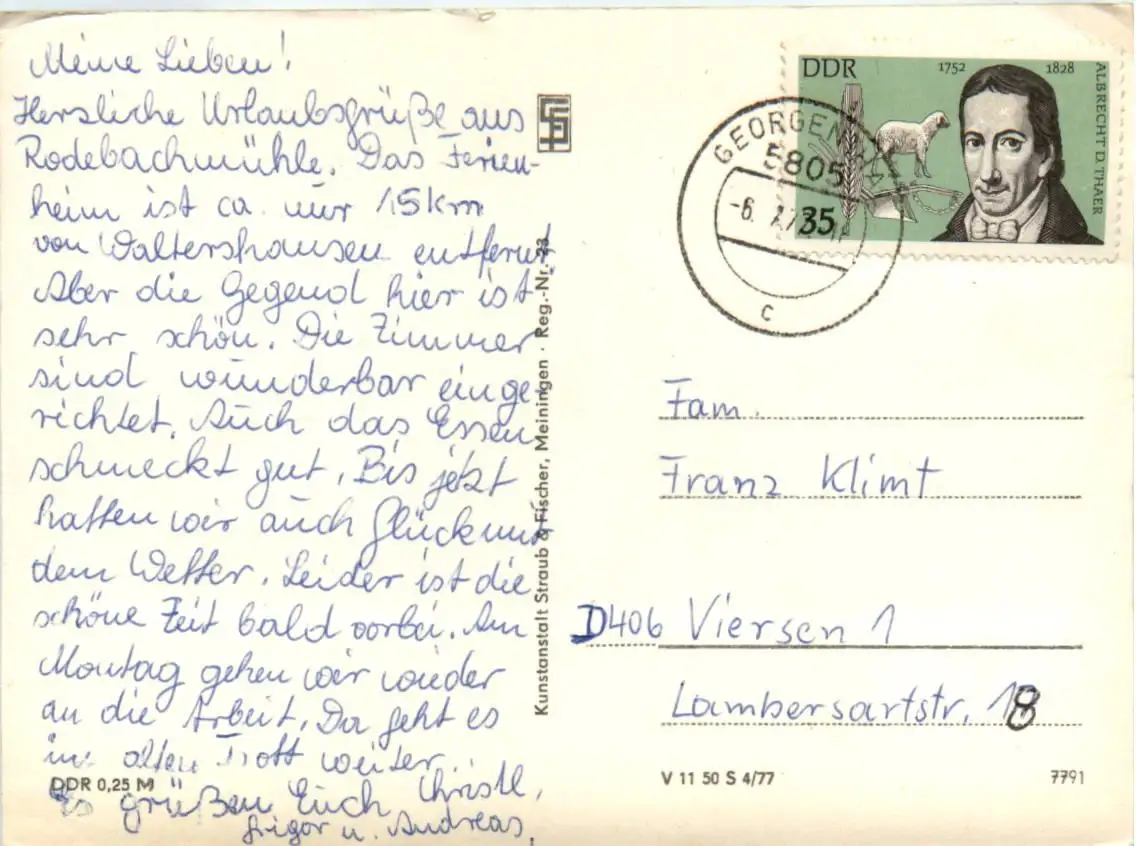 Meine Lieben!
Herzliche Urlaubsgrüße aus
Rodebachmühle. Das Ferien-
heim ist ca. nur 15km
von Waltershausen entfernt
Aber die Gegend hier ist
sehr schön. Die Zimmer
sind wunderbar einge-
richtet. Auch das Essen
schmeckt gut. Bis jetzt
hatten wir auch Glück mit
dem Wetter. Leider ist die
schöne Zeit bald vorbei. Am
Montag gehen wir wieder
an die Arbeit. Da geht es
im alten Trott weiter.
Es grüßen Euch Christl,
u. Andreas.
DDR 0,25 M
Kunstanstalt Straub & Fischer, Meiningen · Reg.-Nr. 23
DDR 1752 1828
ALBRECHT D. THAER
35
GEORGEN
5805
-6.
c
Fam.
Franz Klimt
D406 Viersen 1
Lambersartstr. 18
V 11 50 S 4/77
7791